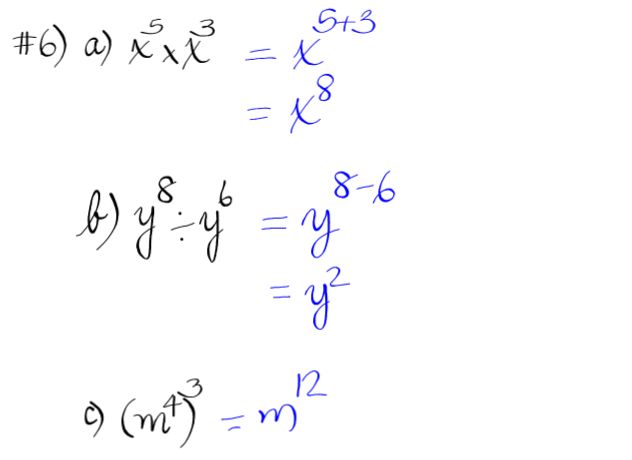 #6) a) x⁵ × x³ = x⁵⁺³
= x⁸
b) y⁸ ÷ y⁶ = y⁸⁻⁶
= y²
c) (m⁴)³ = m¹²